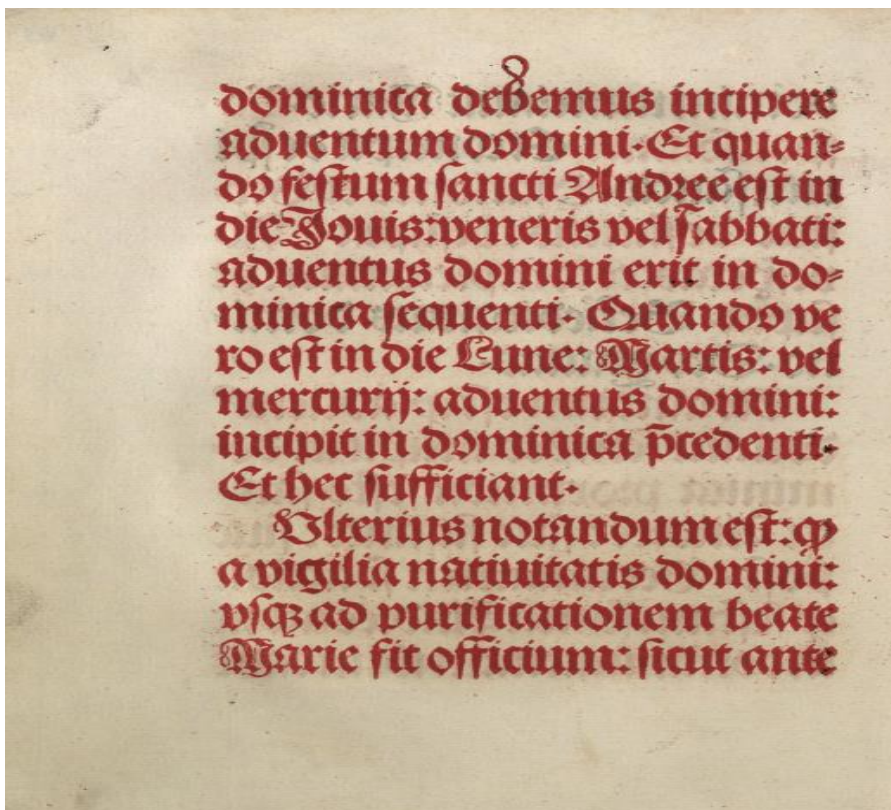 dominica debemus incipere
aduentum domini. Et quan=
do festum sancti Andree est in
die Jouis: veneris vel sabbati:
aduentus domini erit in do=
minica sequenti. Quando ve
ro est in die Lune: Martis: vel
mercurij: aduentus domini:
incipit in dominica p̄cedenti.
Et hec sufficiant.
Ulterius notandum est: ꝙ
a vigilia natiuitatis domini:
vsqꝫ ad purificationem beate
Marie fit officium: sicut ante